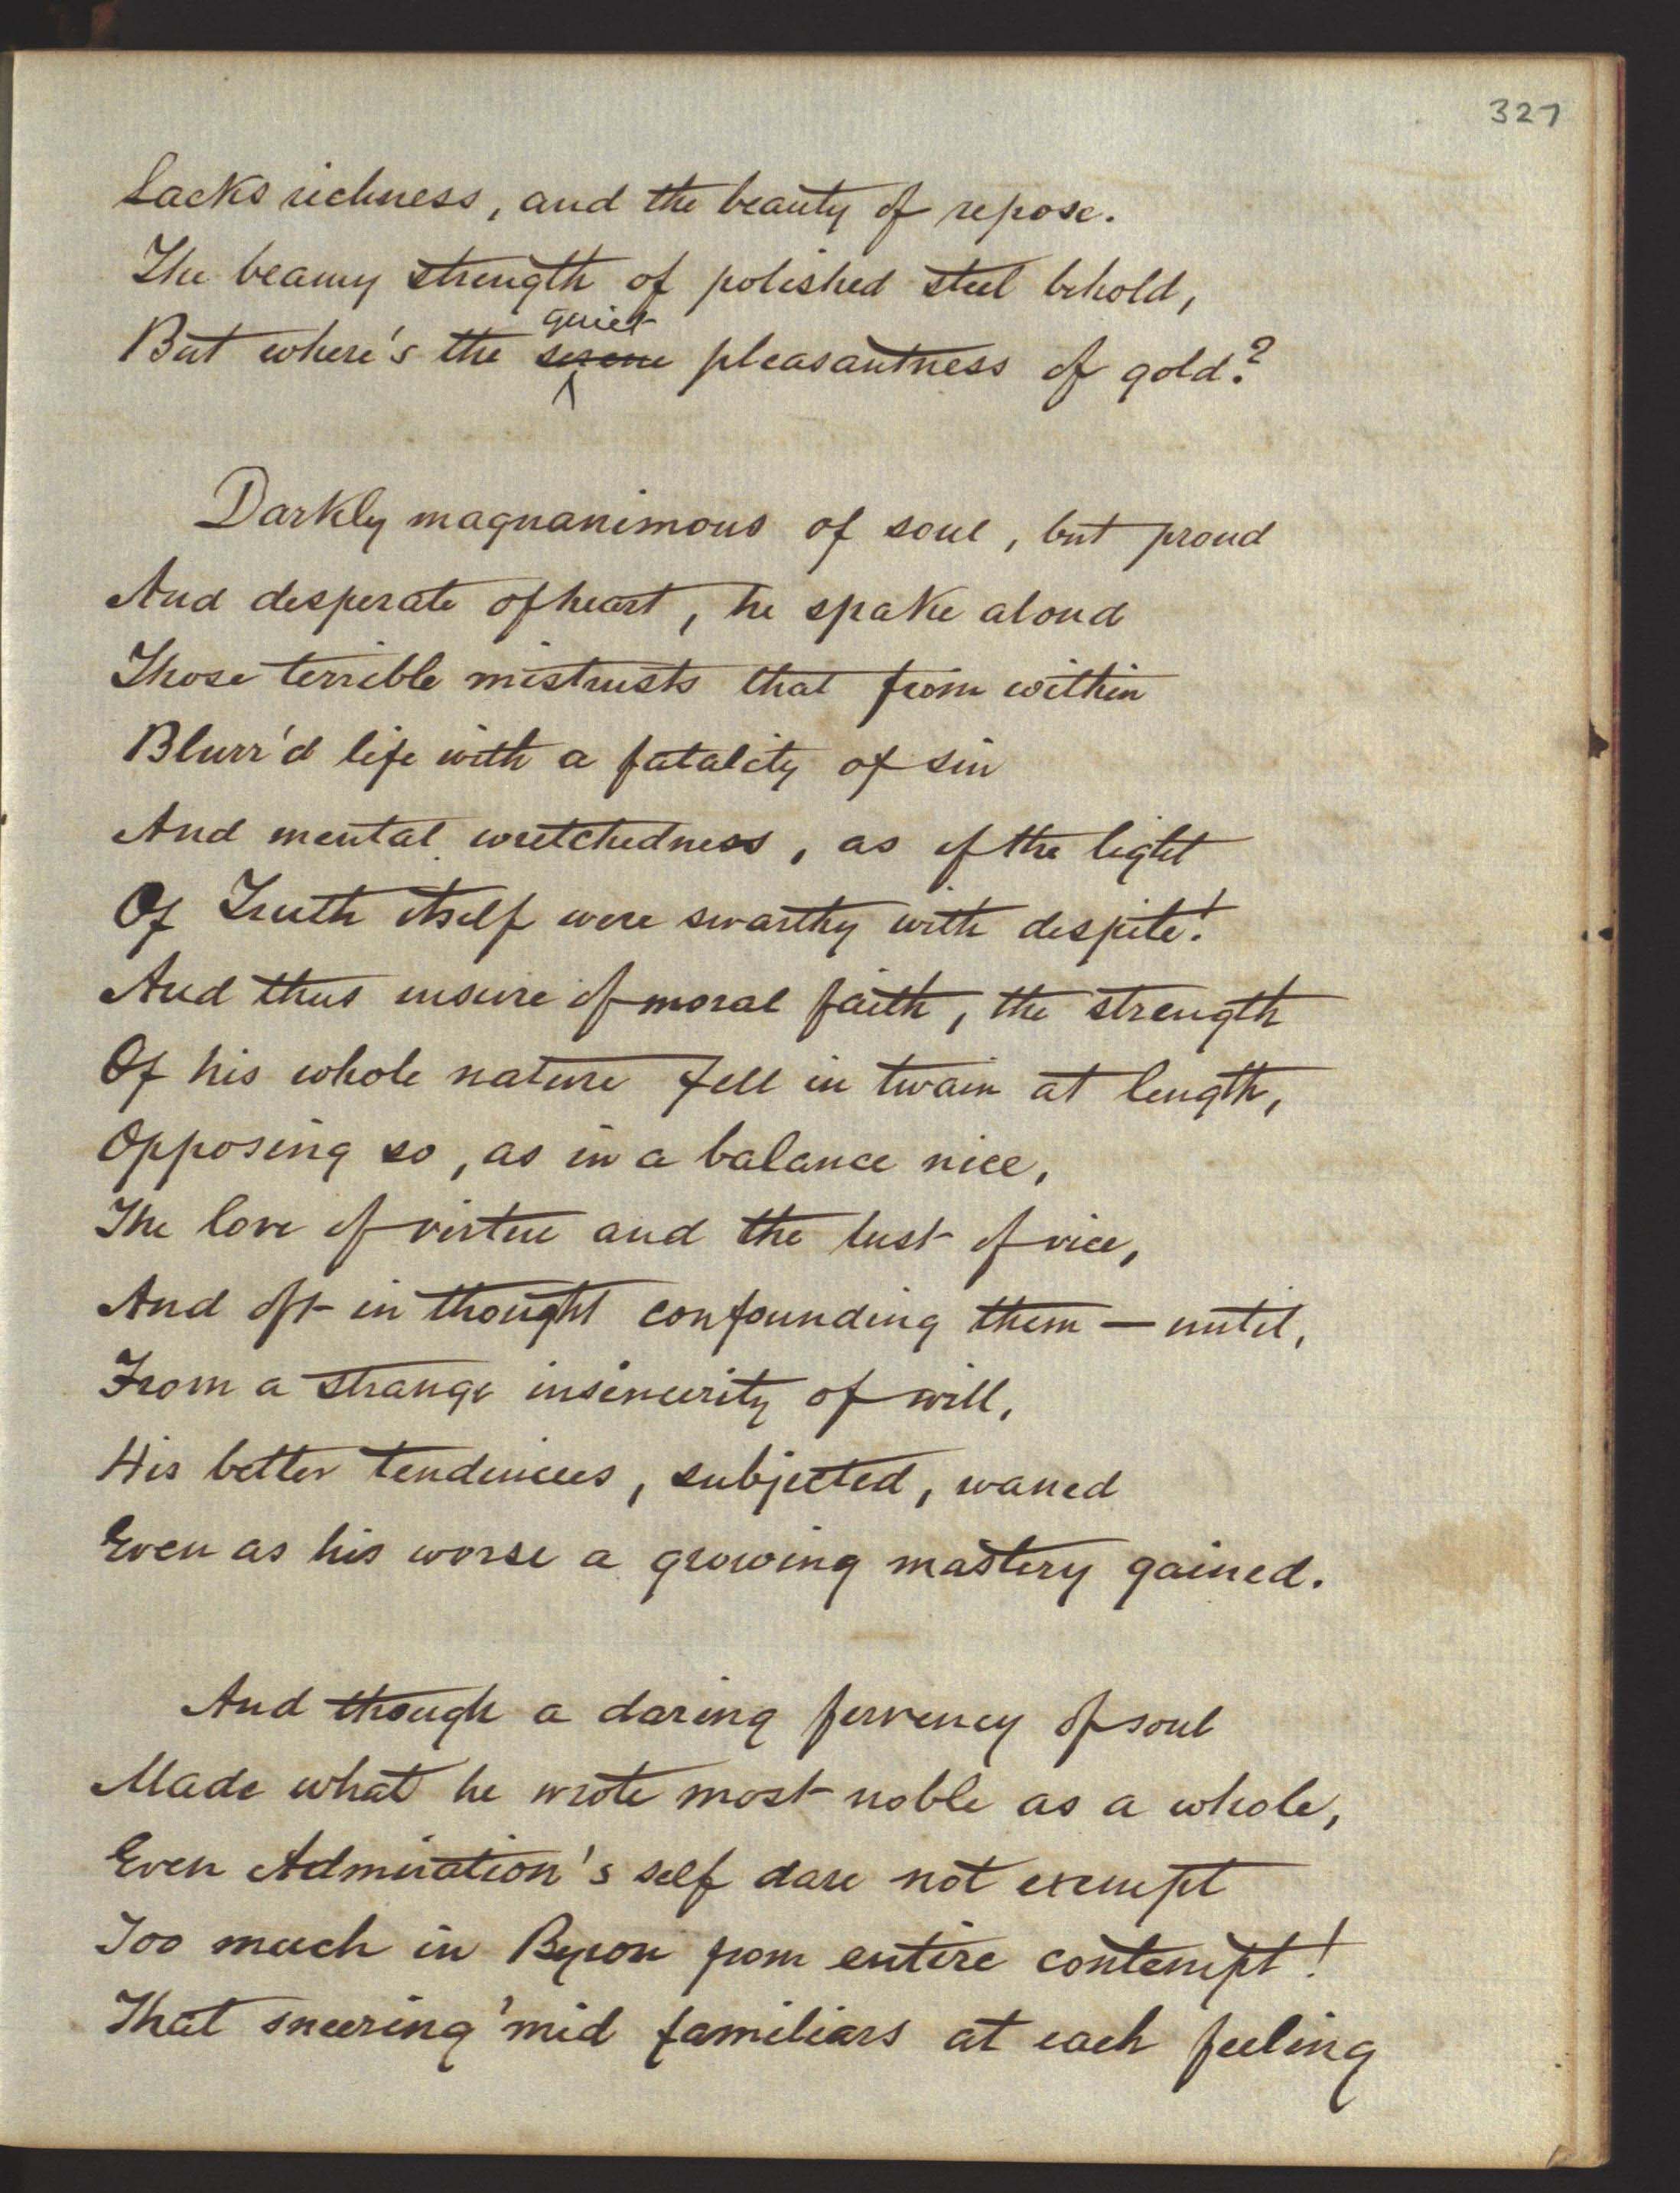 327
Lacks richness, and the beauty of repose.
The beamy strength of polished steel behold,
quiet
But where's the serene pleasantness of gold?
Darkly magnanimous of soul, but proud
And desperate of heart, he spake aloud
Those terrible mistrusts that from within
Blurr'd life with a fatality of sin
And mental wretchedness, as if the light
Of Truth itself were swarthy with despite!
And thus insure of moral faith, the strength
Of his whole nature fell in twain at length,
Opposing so, as in a balance nice,
The love of virtue and the lust of vice,
And oft in thought confounding them — until,
From a strange insincerity of will,
His better tendencies, subjected, waned
Even as his worse a growing mastery gained.
And though a daring fervency of soul
Made what he wrote most noble as a whole,
Even Admiration's self dare not exempt
Too much in Byron from entire contempt!
That sneering 'mid familiars at each feeling